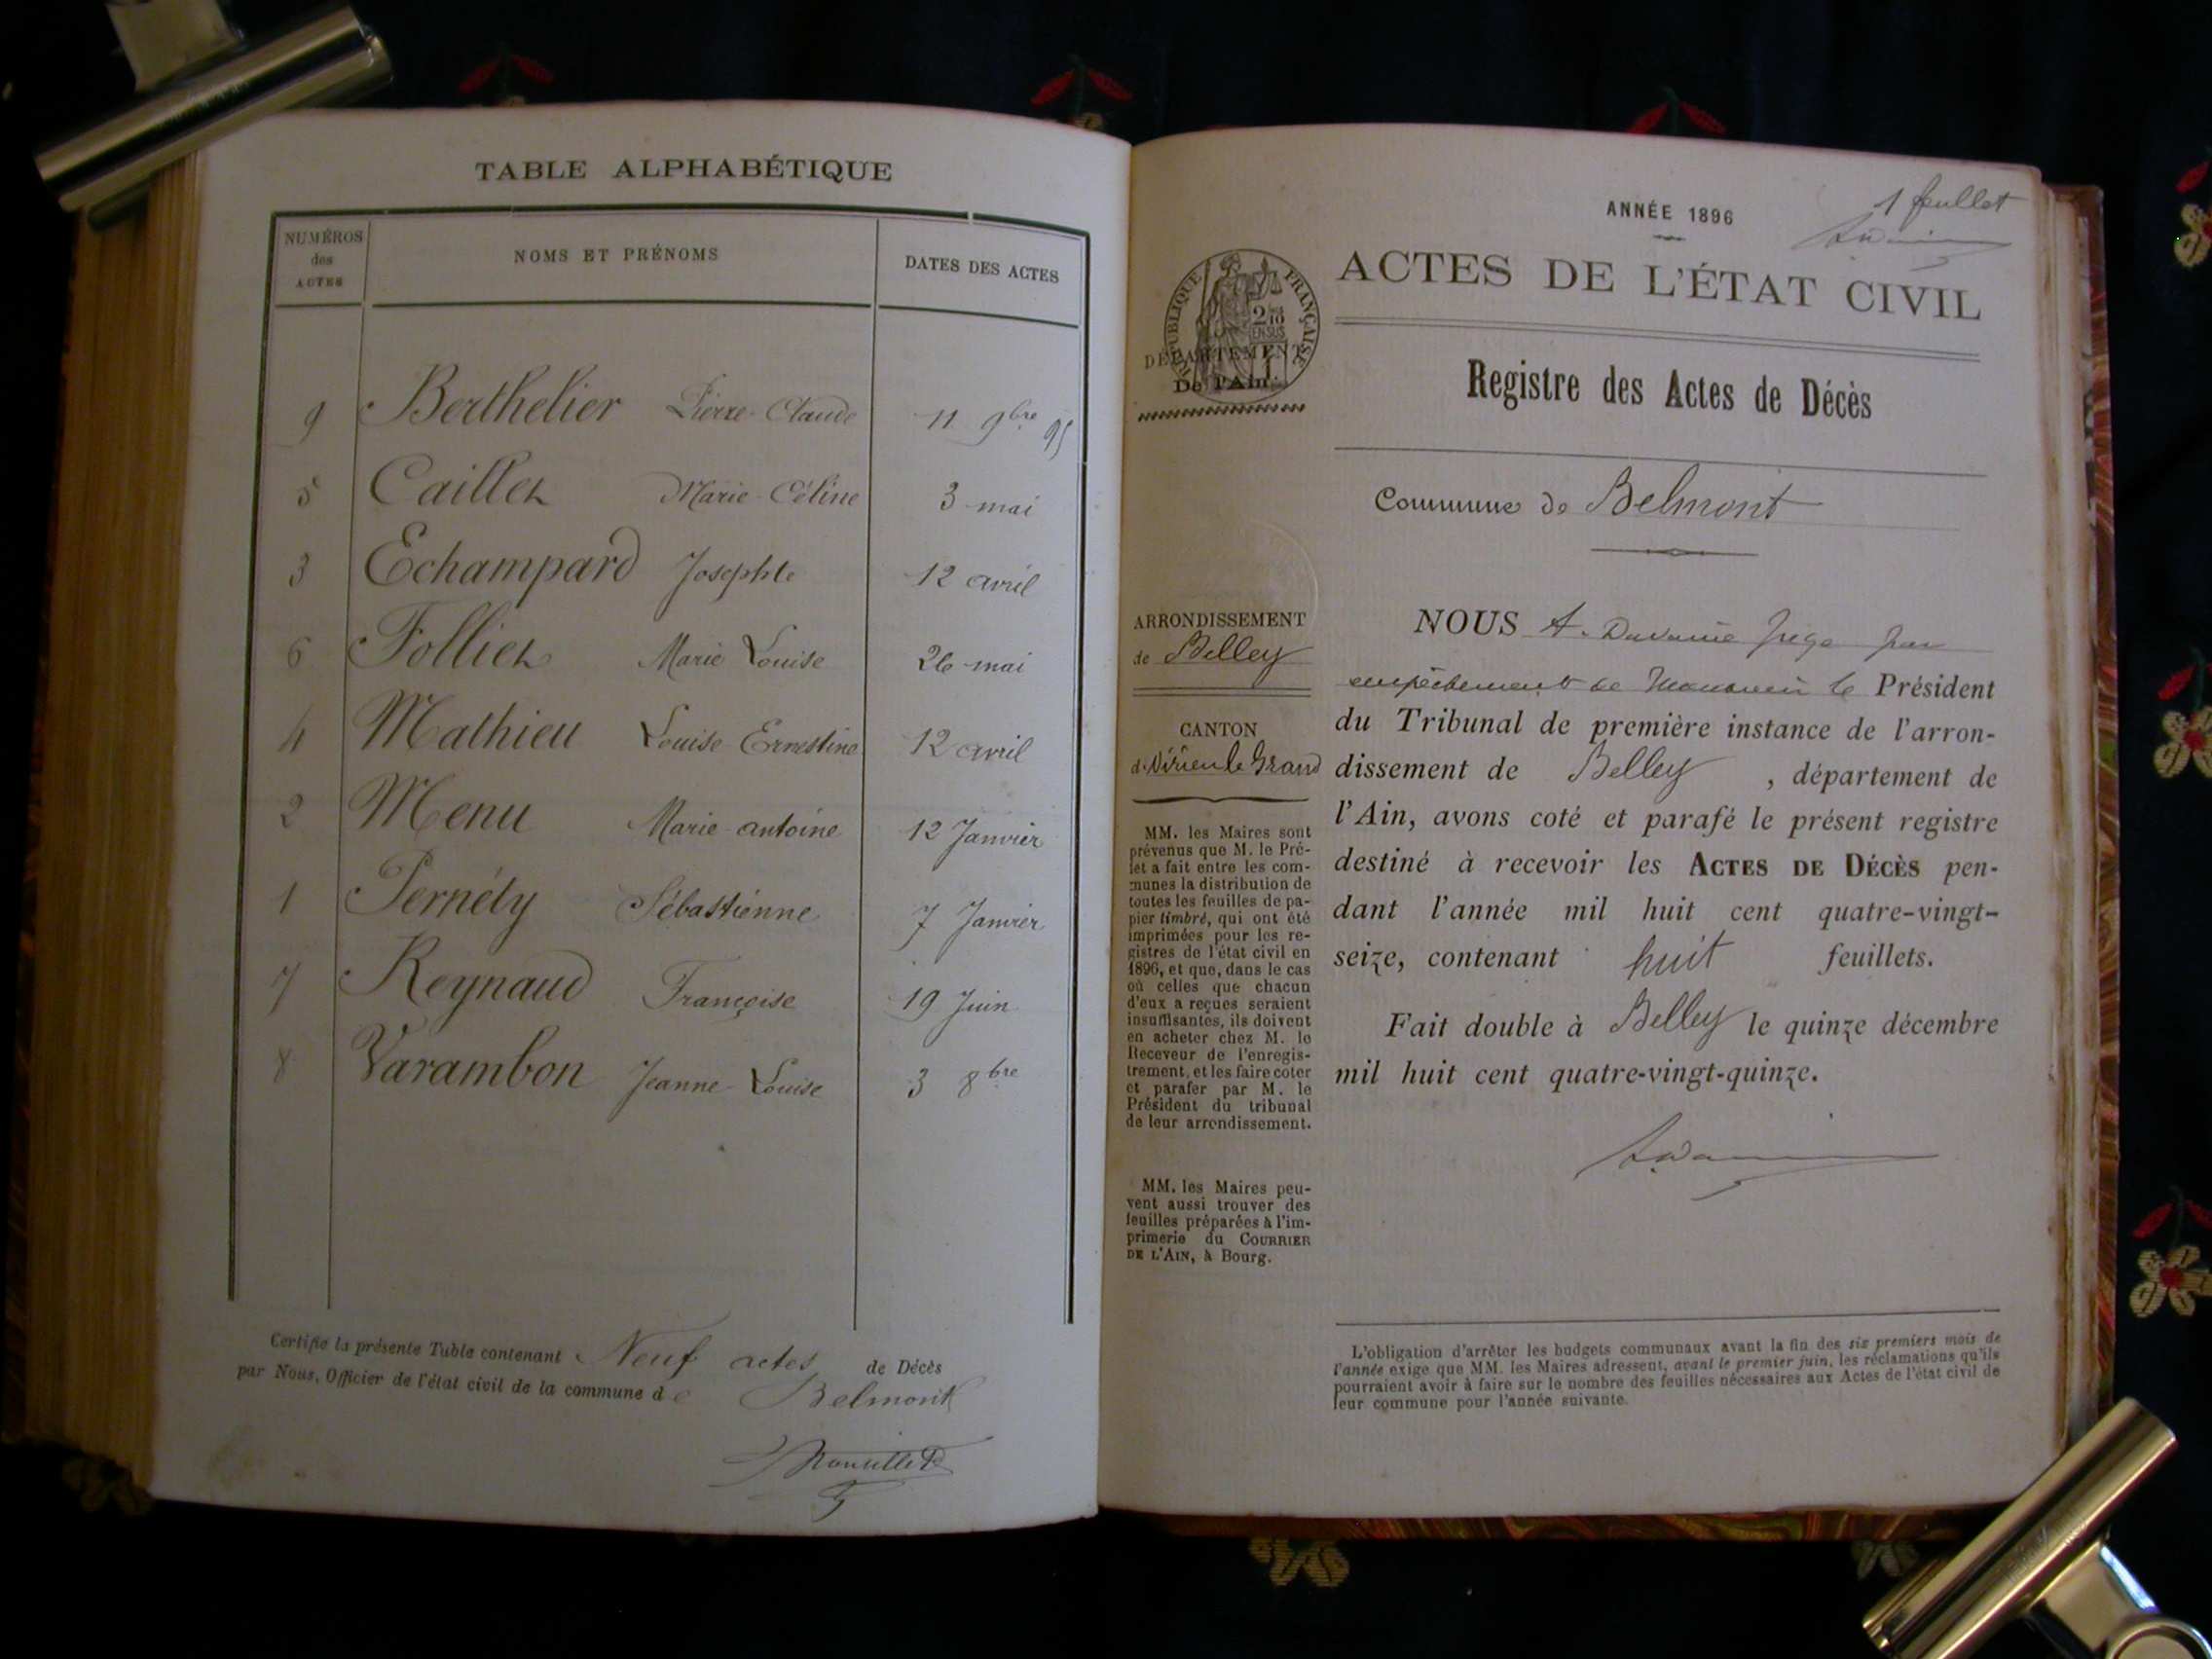 TABLE ALPHABÉTIQUE
NUMÉROS des ACTES
NOMS ET PRÉNOMS
DATES DES ACTES
9 Berthelier Pierre-Claude 11 9bre 95
5 Caillez Marie-Céline 3 mai
3 Echampard Josephte 12 avril
6 Folliez Marie Louise 26 mai
4 Mathieu Louise-Ernestine 12 avril
2 Menu Marie-antoine 12 Janvier
1 Pernéty Sébastienne 7 Janvier
7 Reynaud Françoise 19 Juin
8 Varambon Jeanne-Louise 3 8bre
Certifié la présente Table contenant Neuf actes de Décès
par Nous, Officier de l'état civil de la commune de Belmont
1 feuillet
ANNÉE 1896
ACTES DE L'ÉTAT CIVIL
RÉPUBLIQUE FRANÇAISE
DÉPARTEMENT
De l'Ain.
Registre des Actes de Décès
Commune de Belmont
ARRONDISSEMENT
de Belley
CANTON
de Virieu le Grand
MM. les Maires sont
prévenus que M. le Pré-
fet a fait entre les com-
munes la distribution de
toutes les feuilles de pa-
pier timbré, qui ont été
imprimées pour les re-
gistres de l'état civil en
1896, et que, dans le cas
où celles que chacun
d'eux a reçues seraient
insuffisantes, ils doivent
en acheter chez M. le
Receveur de l'enregis-
trement, et les faire coter
et parafer par M. le
Président du tribunal
de leur arrondissement.
MM. les Maires peu-
vent aussi trouver des
feuilles préparées à l'im-
primerie du COURRIER
DE L'AIN, à Bourg.
NOUS A. juge par
empêchement de Monsieur le Président
du Tribunal de première instance de l'arron-
dissement de Belley, département de
l'Ain, avons coté et parafé le présent registre
destiné à recevoir les ACTES DE DÉCÈS pen-
dant l'année mil huit cent quatre-vingt-
seize, contenant huit feuillets.
Fait double à Belley le quinze décembre
mil huit cent quatre-vingt-quinze.
L'obligation d'arrêter les budgets communaux avant la fin des six premiers mois de
l'année exige que MM. les Maires adressent, avant le premier juin, les réclamations qu'ils
pourraient avoir à faire sur le nombre des feuilles nécessaires aux Actes de l'état civil de
leur commune pour l'année suivante.